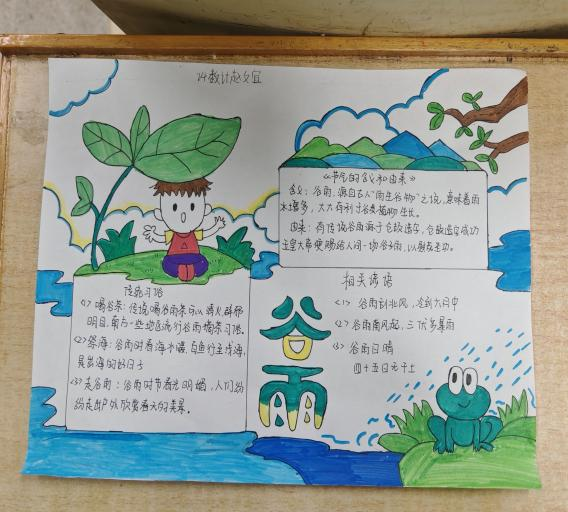 《节气的含义和由来》
含义：谷雨，源自古人"雨生谷物"之说，意味着雨
水增多，大大有利于谷类植物生长。
由来：有传说谷雨源于仓颉造字，仓颉造字成功
玉皇大帝便赐给人间一场谷子雨，以慰劳圣功。
传统习俗
<1>喝谷茶：传说喝谷雨茶可以清火辟邪
明目，南方一些地区流行谷雨摘茶习俗。
<2>祭海：谷雨时春海水暖，百鱼行至浅海，
是出海的好日子
<3>走谷雨：谷雨时节春光明媚，人们纷
纷走出户外欣赏春天的美景。
谷雨
相关谚语
<1>谷雨刮北风，冷到六月中
<2>谷雨南风起，三伏多暴雨
<3>谷雨日晴
四十五日无干土